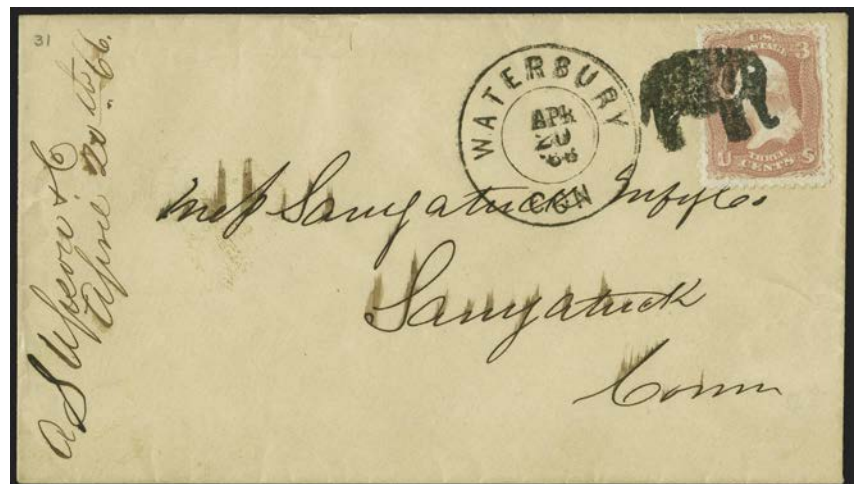 31
A S Upson & C
April 20th 66.
WATERBURY
APR
20
66
CON
U.S.
POSTAGE
3
THREE
U CENTS S
Mess Saugatuck Mfg Co.
Saugatuck
Conn